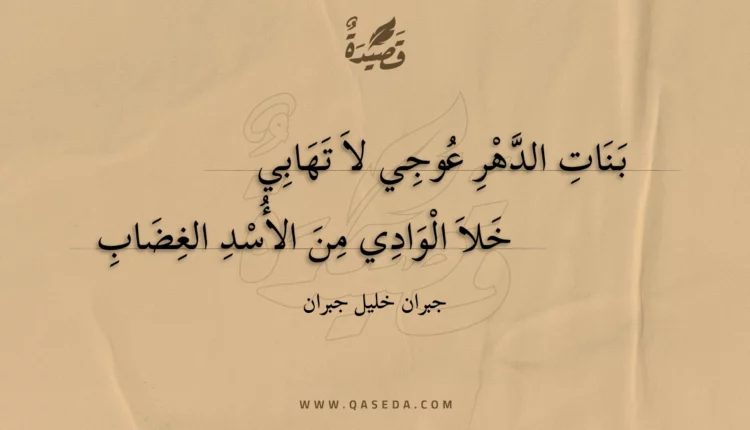 قَصِيْدَةٌ
بَنَاتِ الدَّهْرِ عُوجِي لاَ تَهَابِي
خَلاَ الْوَادِي مِنَ الأُسْدِ الغِضَابِ
جبران خليل جبران
WWW.QASEDA.COM